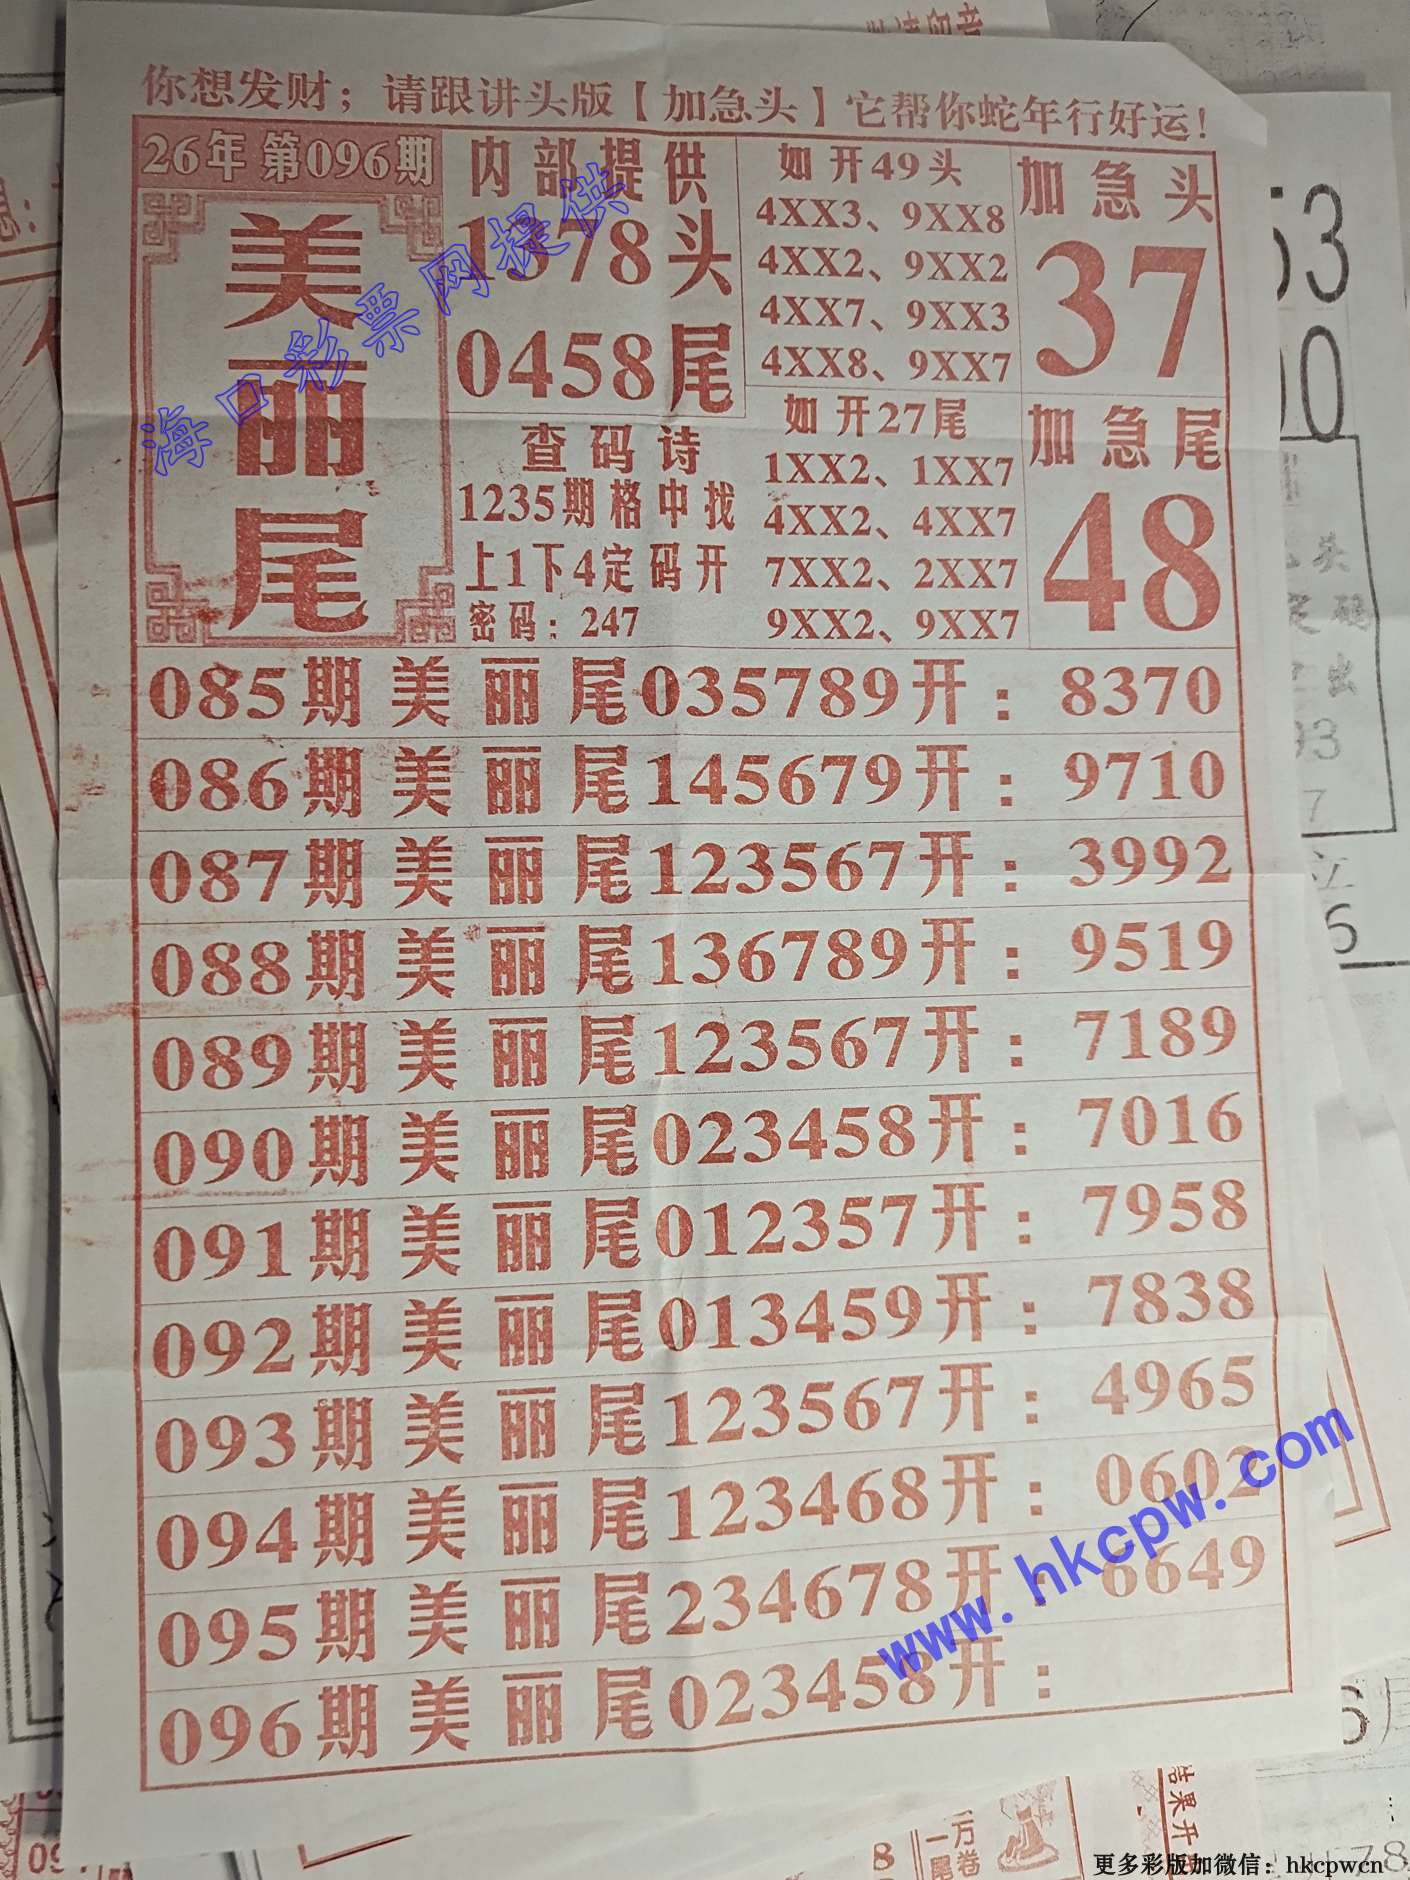 你想发财；请跟讲头版【加急头】它帮你蛇年行好运！
26年 第096期
美丽尾
内部提供
1378头
0458尾
查码诗
1235期格中找
上1下4定码开
密码：247
如开49头
4XX3、9XX8
4XX2、9XX2
4XX7、9XX3
4XX8、9XX7
如开27尾
1XX2、1XX7
4XX2、4XX7
7XX2、2XX7
9XX2、9XX7
加急头
37
加急尾
48
085期美丽尾035789开：8370
086期美丽尾145679开：9710
087期美丽尾123567开：3992
088期美丽尾136789开：9519
089期美丽尾123567开：7189
090期美丽尾023458开：7016
091期美丽尾012357开：7958
092期美丽尾013459开：7838
093期美丽尾123567开：4965
094期美丽尾123468开：0602
095期美丽尾234678开：6649
096期美丽尾023458开：
海口彩票网提供
www.hkcpw.com
结果开
万卷
一尾
8
更多彩版加微信：hkcpwcn